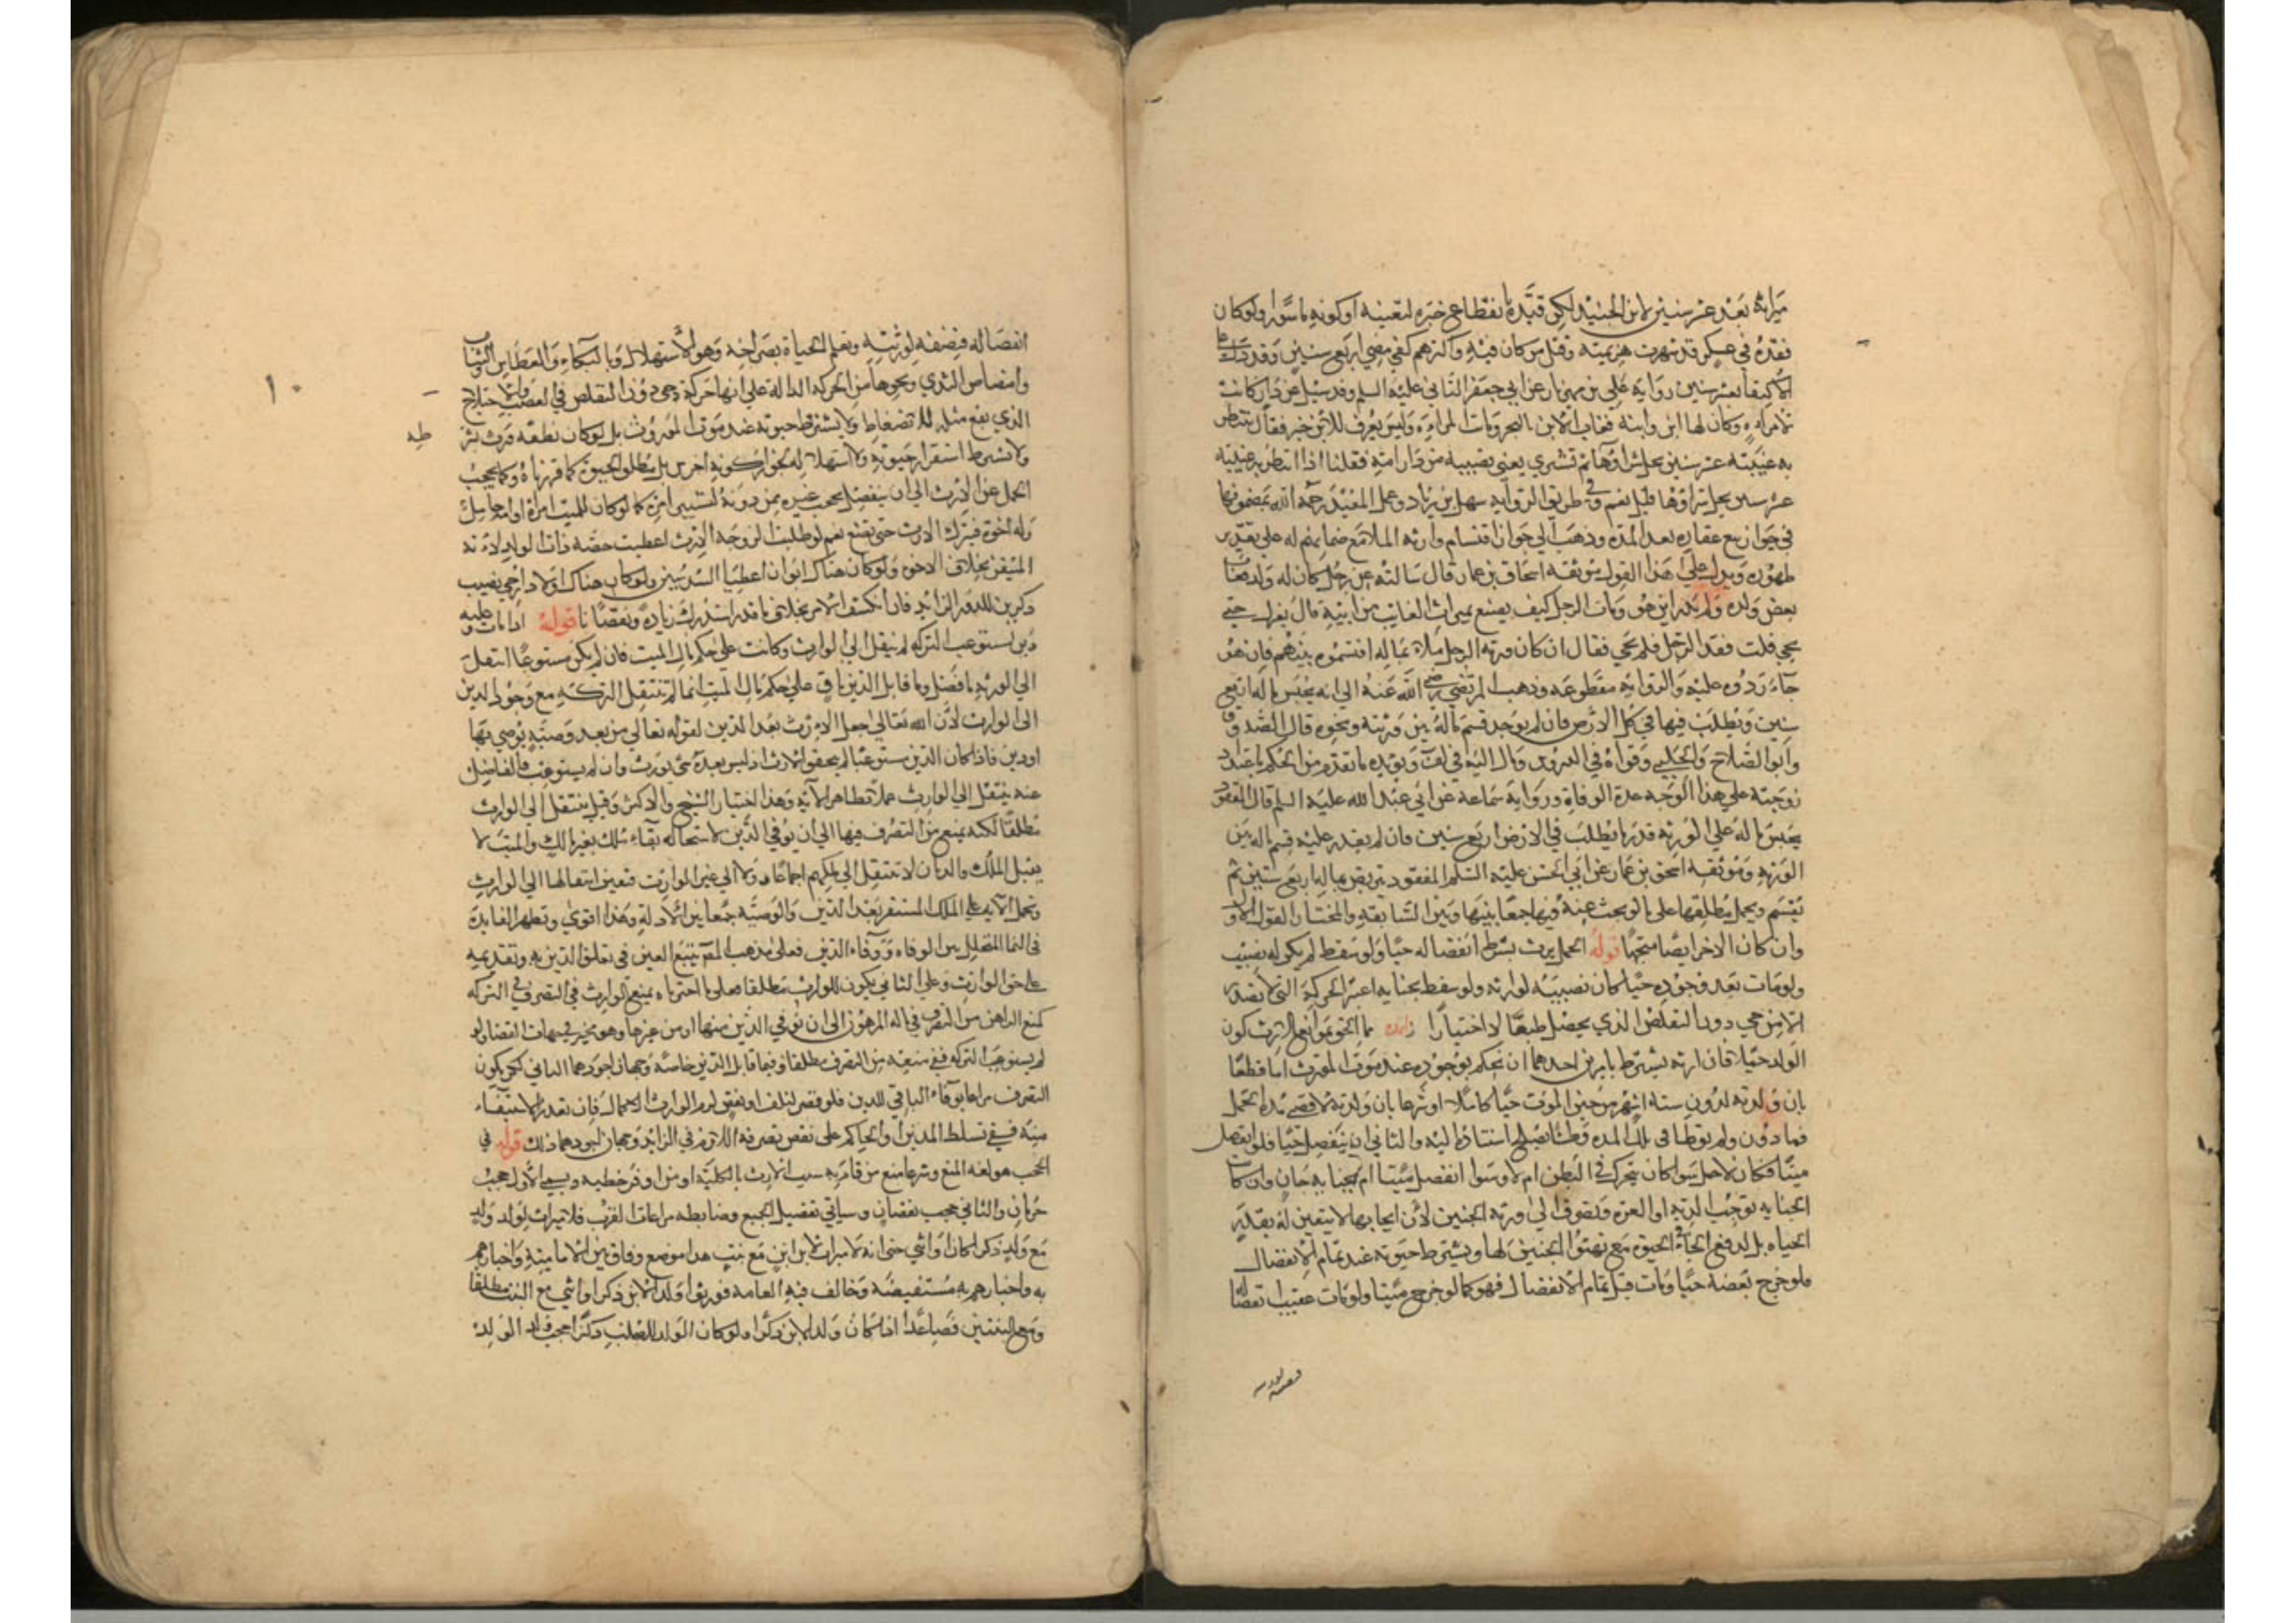 ميراثه بعد عشر سنين لابن الجنيد لكن قيده بانقطاع خبره لتعينه او كونه ماسورا ولو كان
فقده في عسكر قد شهرت هزيمته وقتل من كان فيه واكثرهم كفي مضي اربع سنين وقد دل على
الاكتفا بعشر سنين رواية علي بن مهزيار عن ابي جعفر الثاني عليه السلم وقد سئل عن دار كانت
لامراه وكان لها ابن وابنة فغاب الابن بالبحر وماتت المراة وليس يعرف للابن خبر فقال ينتظر
به غيبته عشر سنين يحل شراؤها ثم تشري يعني نصيبه من دار امه فقلنا اذا انتظر به غيبته
عشر سنين يحل شراؤها قيل نعم وفي طريق الرواية سهل بن زياد وعمل المفيد رحمه الله بمضمونها
في جواز بيع عقاره بعد المدة وذهب الى جواز اقتسام وارثه الملا مع ضمانهم له على تقدير
ظهوره ويدل على هذا القول موثقة اسحاق بن عمار قال سالته عن رجل كان له ولد فغاب
بعض ولده ولم يدر اين هو ومات الرجل كيف يصنع بميراث الغايب من ابيه قال يعزل حتى
يجي قلت فقد الرجل فلم يجي فقال ان كان ورثة الرجل ملاء بماله اقتسموه بينهم فان هو
جاء ردوه عليه والرواية مقطوعة وذهب المرتضى رضي الله عنه الى انه يحبس ماله اربع
سنين ويطلب فيها في كل الارض فان لم يوجد قسم ماله بين ورثته ونحوه قال الصدوق
وابو الصلاح والحلبي وقواه في الدروس ومال اليه في لف ويؤيده ما تقدم من الحكم باعتداد
زوجته على هذا الوجه عدة الوفاة ورواية سماعة عن ابي عبد الله عليه السلم قال المفقود
يحبس ماله على الورثة قدر ما يطلب في الارض اربع سنين فان لم يقدر عليه قسم ماله بين
الورثة وموثقة اسحق بن عمار عن ابي الحسن عليه السلم المفقود يتربص بماله اربع سنين ثم
يقسم ويحمل مطلقها على ما لو بحث عنه فيها جمعا بينها وبين السابقة والمختار القول الاول
وان كان الاخر ايضا متجها قوله الحمل يرث بشرط انفصاله حيا ولو سقط لم يكن له نصيب
ولو مات بعد وجوده حيا كان نصيبه لوارثه ولو سقط بجناية اعتبر الحركة التي لا تصدر
الا من حي دون التقلص الذي يحصل طبعا لا اختيارا مما الحق بموانع الارث كون
الولد حملا فان ارثه يشترط بامرين احدهما ان يحكم بوجوده عند موت المورث اما قطعا
بان ولدته لدون ستة اشهر من حين الموت حيا كاملا او شرعا بان ولدته لاقصى مدة الحمل
فما دون ولم توطا في تلك المدة وطئا يصلح استناده اليه والثاني ان ينفصل حيا فلو انفصل
ميتا فكان لا حمل سوا كان يتحرك في البطن ام لا وسوا انفصل ميتا ام بجناية جان وان كانت
الجناية توجب الدية او الغرة وتصرف الى ورثة الجنين لان ايجابها لا يتعين له بتقدير
الحياه بل لدفع الجاني الحيوة مع تهيؤ الجنين لها ويشترط حيوته عند تمام الانفصال
فلو خرج بعضه حيا ومات قبل تمام الانفصال فهو كما لو خرج ميتا ولو مات عقيب انفصاله
انفصاله فنصيبه لورثته وتعلم الحياة بصراخه وهو الاستهلال وبالبكاء والعطاس والتثاوب
وامتصاص الثدي ونحوها من الحركة الدالة على انها حركة حي دون التقلص في العصب والاختلاج
الذي يقع مثله للانضغاط ولا يشترط حيوته عند موت المورث بل لو كان نطفة ورث بشر
ولا يشترط استقرار حيوته ولا استهلاله لجواز كونه اخرس بل مطلق الحيوة كما قررناه وكما يحجب
الحمل عن الارث الى ان ينفصل يحجب غيره ممن دونه ليستبين امره كما لو كان للميت امراة او امة حامل
وله اخوة فيترك الارث حتى تضع نعم لو طلبت الزوجة الارث اعطيت حصة ذات الولد لانه
المتيقن بخلاف الاخوه ولو كان هناك ابوان اعطيا السدسين ولو كان هناك اولاد ارجي نصيب
ذكرين للندور الزائد فان انكشف الامر بخلاف ما قدر استدرك زيادة ونقصانا قوله اذا مات وعليه
دين يستوعب التركه لم ينتقل الى الوارث وكانت على حكم مال الميت فان لم يكن مستوعبا انتقل
الى الورثه ما فضل وما قابل الدين باق على حكم مال الميت انما لم تنتقل التركة مع وجود الدين
الى الوارث لان الله تعالى جعل الارث بعد الدين لقوله تعالى من بعد وصية يوصي بها
او دين فاذا كان الدين مستوعبا لم يتحقق الارث اذ ليس بعده شي يورث وان لم يستوعب فالفاضل
عنه ينتقل الى الوارث عملا بظاهر الآية وهذا اختيار الشيخ والاكثر وقيل ينتقل الى الوارث
مطلقا لكنه يمنع من التصرف فيها الى ان يوفي الدين لاستحالة بقاء ملك بغير مالك والميت لا
يقبل الملك والديان لا تنتقل الى ملكهم اجماعا ولا الى غير الوارث فتعين انتقالها الى الوارث
وتحمل الآية على الملك المستقر بعد الدين والوصية جمعا بين الادلة وهذا اقوى وتظهر الفايدة
في النما المتخلل بين الوفاة ووفاء الدين فعلى مذهب المص يتبع العين في تعلق الدين به وتقديمه
على حق الوارث وعلى الثاني يكون للوارث مطلقا فعلى ما اخترناه يمنع الوارث في التصرف في التركه
كمنع الراهن من التصرف في ماله المرهون الى ان يوفي الدين منها او من غيرها وهو مخير في جهات القضا ولو
لم يستوعب التركه ففي منعه من التصرف مطلقا او فيما قابل الدين خاصة وجهان اجودهما الثاني لكن يكون
التصرف مراعا بوفاء الباقي للدين فلو قصر لتلف او نقص لزم الوارث الاكمال فان تعذر الاستيفاء
منه ففي تسلط المدين او الحاكم على نقض تصرفه اللازم في الزائد وجهان اجودهما ذلك قوله في
الحجب هو لغة المنع وشرعا منع من قام به سبب الارث بالكلية او من اوفر حظيه ويسمى الاول حجب
حرمان والثاني حجب نقصان وسياتي تفصيل الجميع وضابطه مراعات القرب فلا ميراث لولد ولد
مع ولد ذكرا كان او انثى حتى انه لا ميراث لابن ابن مع بنت هذا موضع وفاق بين الامامية واخبارهم
به واخبارهم به مستفيضة وخالف فيه العامه فورثوا ولد الابن ذكرا او انثى مع البنت مطلقا
ومع البنتين فصاعدا اذا كان ولد الابن ذكرا ولو كان الولد للصلب ذكرا حجب ولد الولد